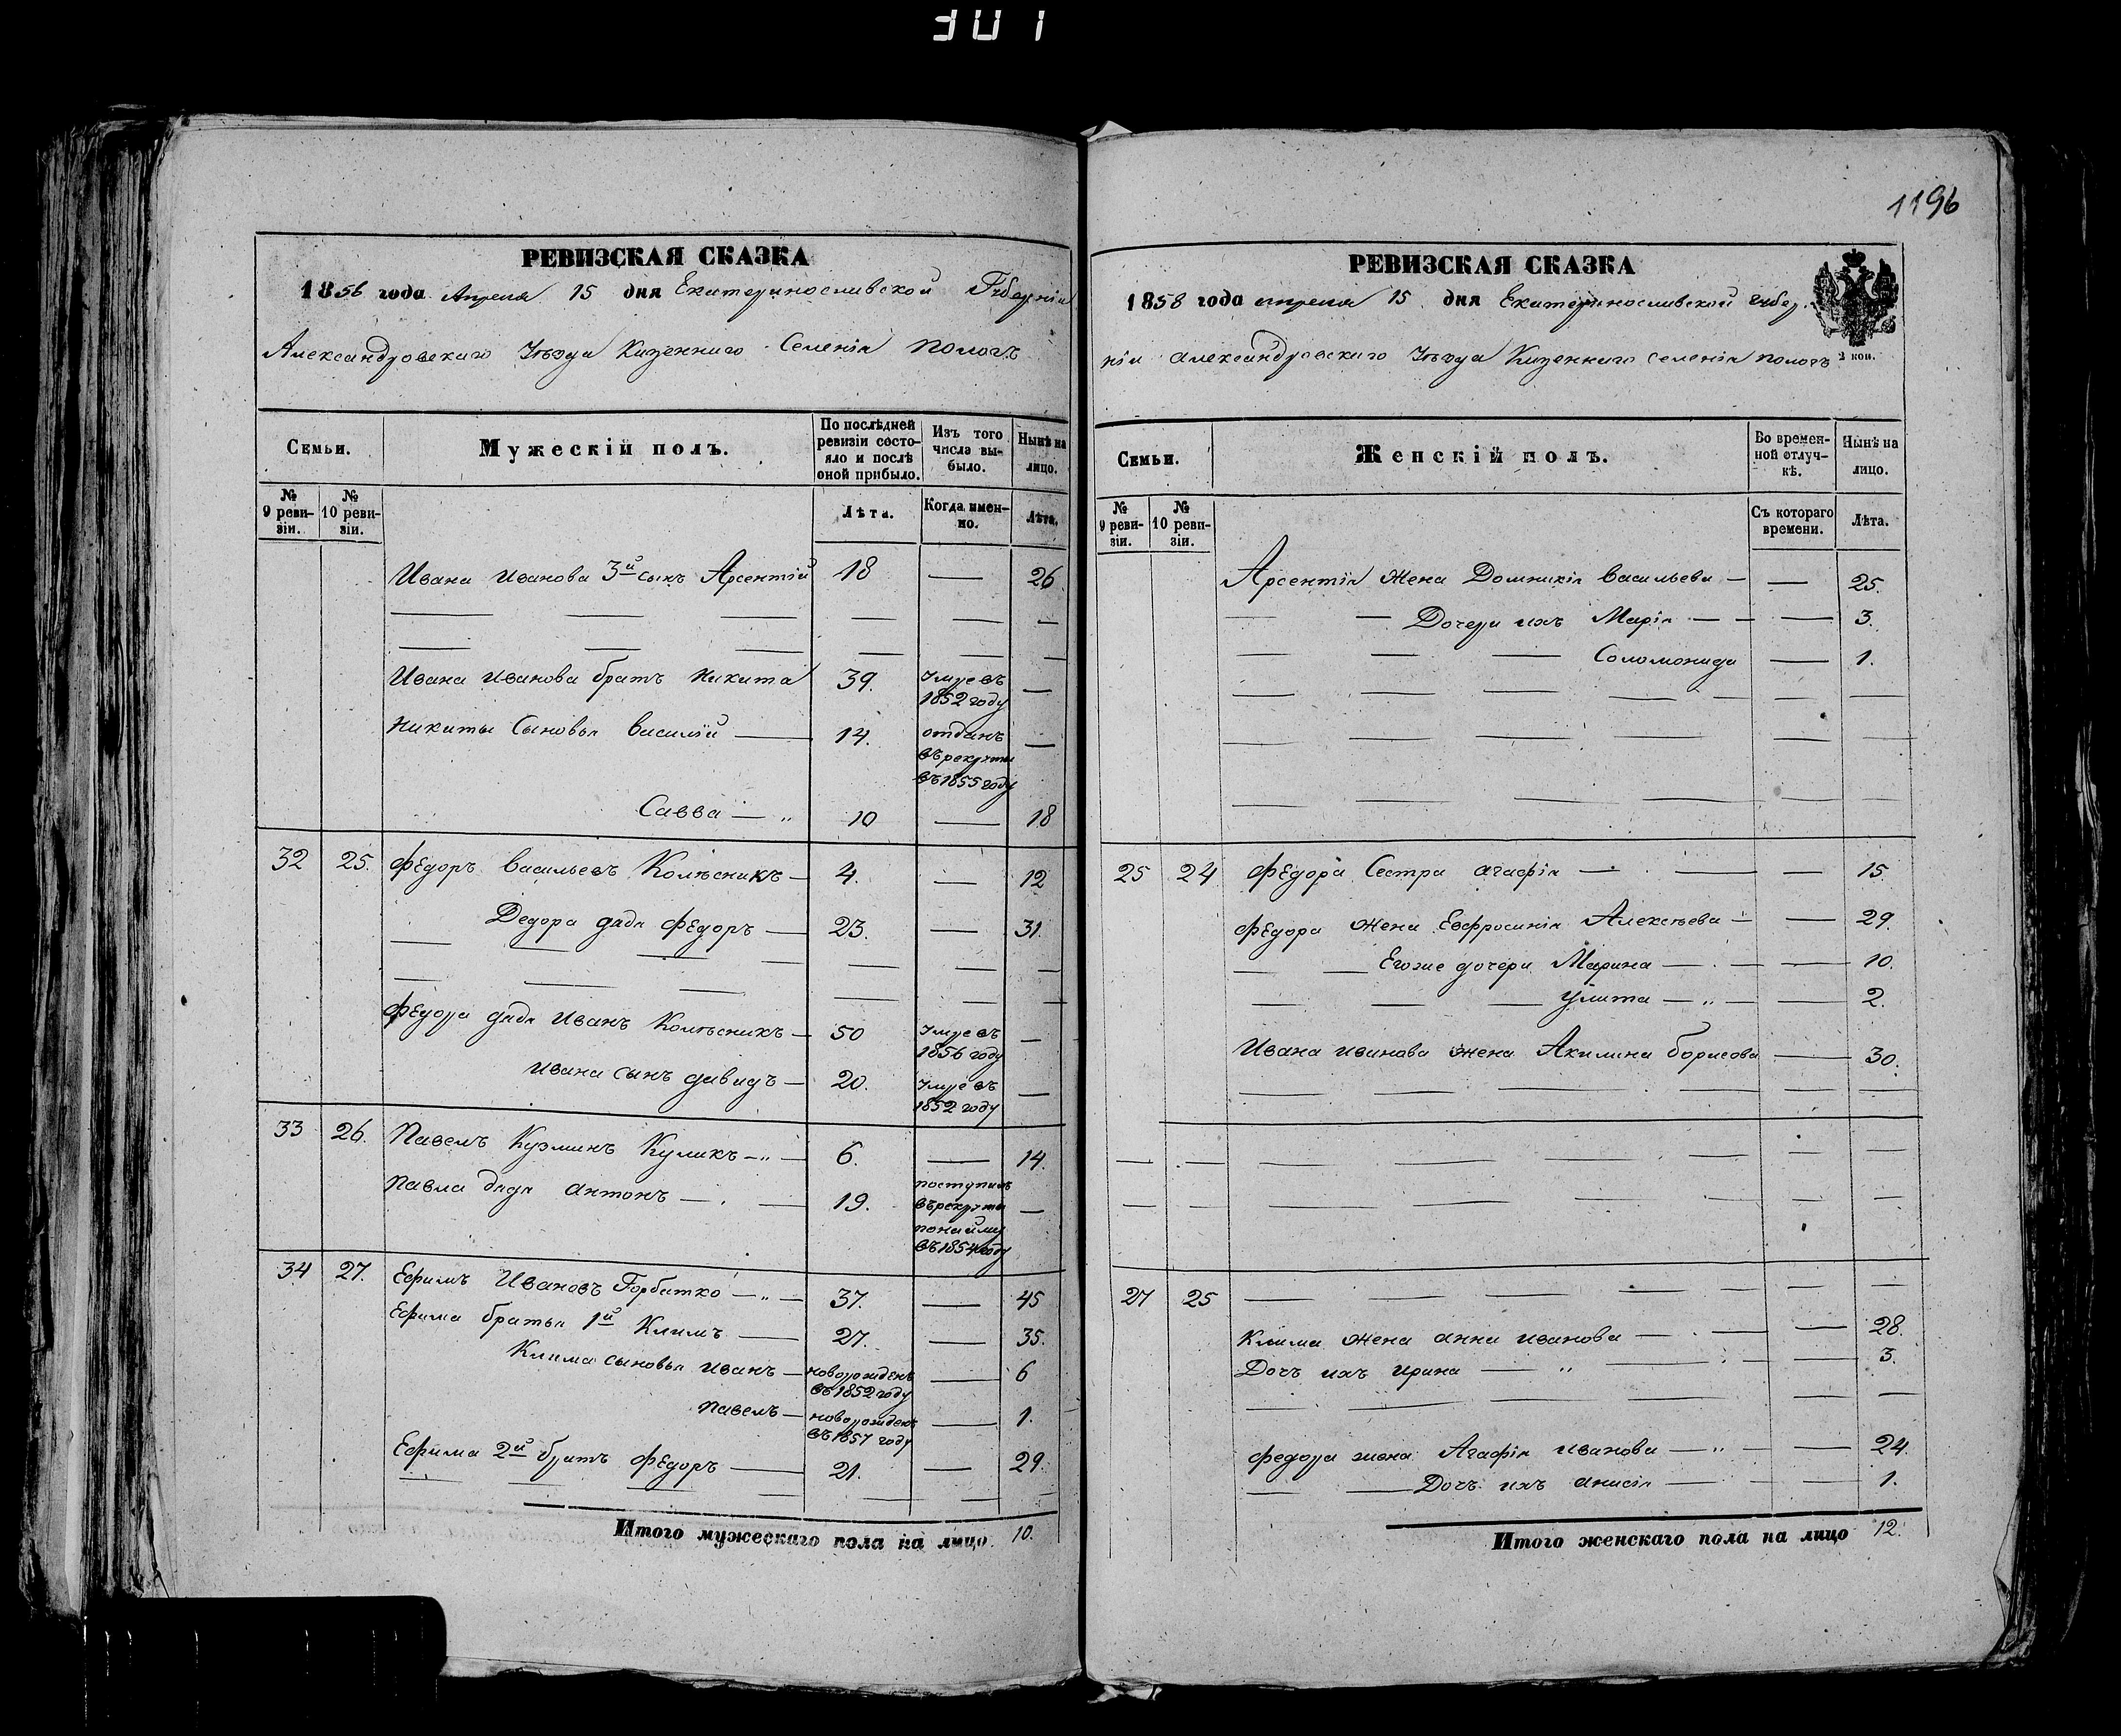 301
1196
РЕВИЗСКАЯ СКАЗКА
1858 года Апреля 15 дня Екатеринославской Губерніи
Александровскаго Уѣзда Казеннаго Селенія Пологъ
Семьи. Мужескій полъ. По послѣдней ревизіи состояло и послѣ оной прибыло. Изъ того числа выбыло. Нынѣ на лицо.
№ 9 ревизіи. № 10 ревизіи. Лѣта. Когда именно. Лѣта.
Ивана Иванова 3й сынъ Арсентій 18 — 26
Ивана Иванова братъ Никита 39. Умре въ 1852 году —
Никиты Сыновья Василій — 14. отданъ въ рекруты въ 1855 году —
Савва — „ 10 — 18
32 25. Федоръ Васильевъ Колѣсникъ — 4. — 12
Федора дядя Федоръ — 23. — 31.
Федора дядя Иванъ Колѣсникъ — 50 Умре въ 1856 году —
Ивана сынъ давидъ — 20. Умре въ 1852 году —
33 26. Павелъ Кузминъ Куликъ — „ — 6. — 14.
Павла дядя Антонъ — 19. поступилъ въ рекруты по найму въ 1854 году —
34 27. Ефимъ Ивановъ Горбатко — „ — 37. — 45
Ефима братья 1й Климъ — 27. — 35.
Клима сыновья Иванъ — новорожденъ въ 1852 году — 6
Павелъ — новорожденъ въ 1857 году — 1.
Ефима 2й братъ Федоръ — 21. — 29.
Итого мужескаго пола на лицо 10.
РЕВИЗСКАЯ СКАЗКА
1858 года апреля 15 дня Екатеринославской губер-
ніи Александровскаго Уѣзда Казеннаго селенія пологъ
2 коп.
Семьи. Женскій полъ. Во временной отлучкѣ. Нынѣ на лицо.
№ 9 ревизіи. № 10 ревизіи. Съ котораго времени. Лѣта.
Арсентія жена Домникія Васильева — — 25.
Дочери ихъ Марія — — 3.
Соломонида — 1.
25 24 Федора Сестра агафія — — 15.
Федора жена Евфросинія Алексѣева — — 29.
Егоже дочери Марина — — 10.
Улита — „ — 2.
Ивана иванова жена Акилина борисова — 30.
27 25
Клима жена анна иванова — — 28.
Дочъ ихъ ирина — „ — 3.
Федора жена Агафія иванова — „ — 24.
Дочъ ихъ анисія — 1.
Итого женскаго пола на лицо 12.